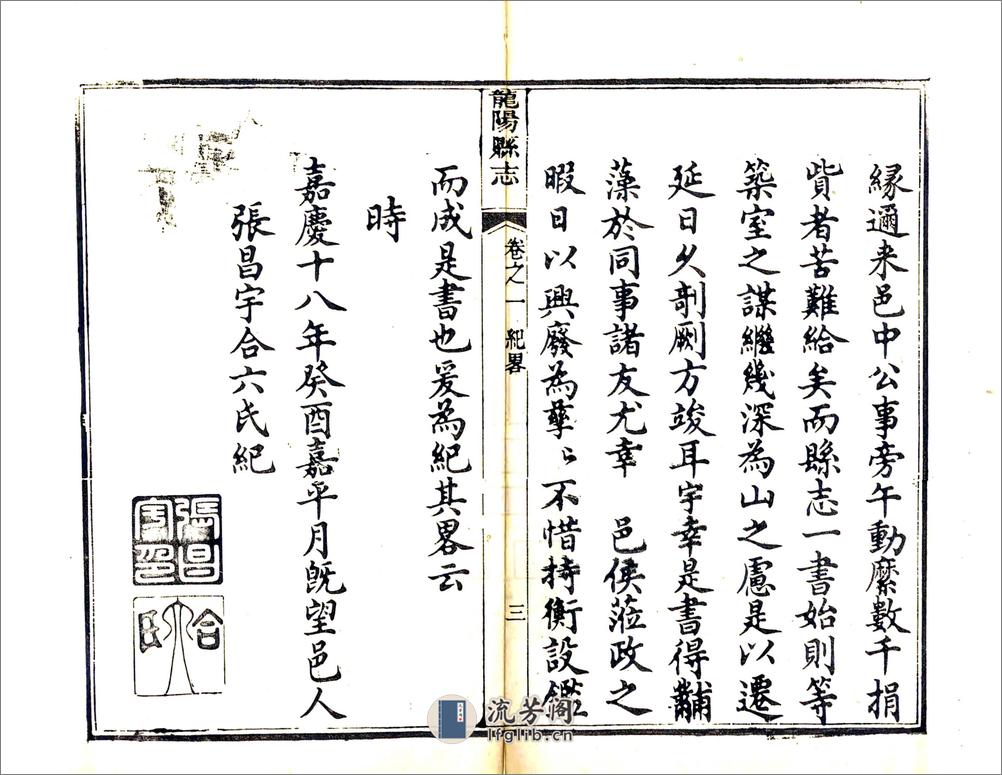 緣邇来邑中公事旁午動縻數千捐
貲者苦難給矣而縣志一書始則等
築室之謀繼幾深為山之慮是以遷
延日久剞劂方竣耳宇幸是書得黼
藻於同事諸友尤幸 邑侯蒞政之
暇日以興廢為孳〻不惜持衡設鑑
龍陽縣志 卷之一 紀畧 三
而成是書也爰為紀其畧云
時
嘉慶十八年癸酉嘉平月旣望邑人
張昌宇合六氏紀
張昌宇印
合六氏
流芳阁
lfglib.cn